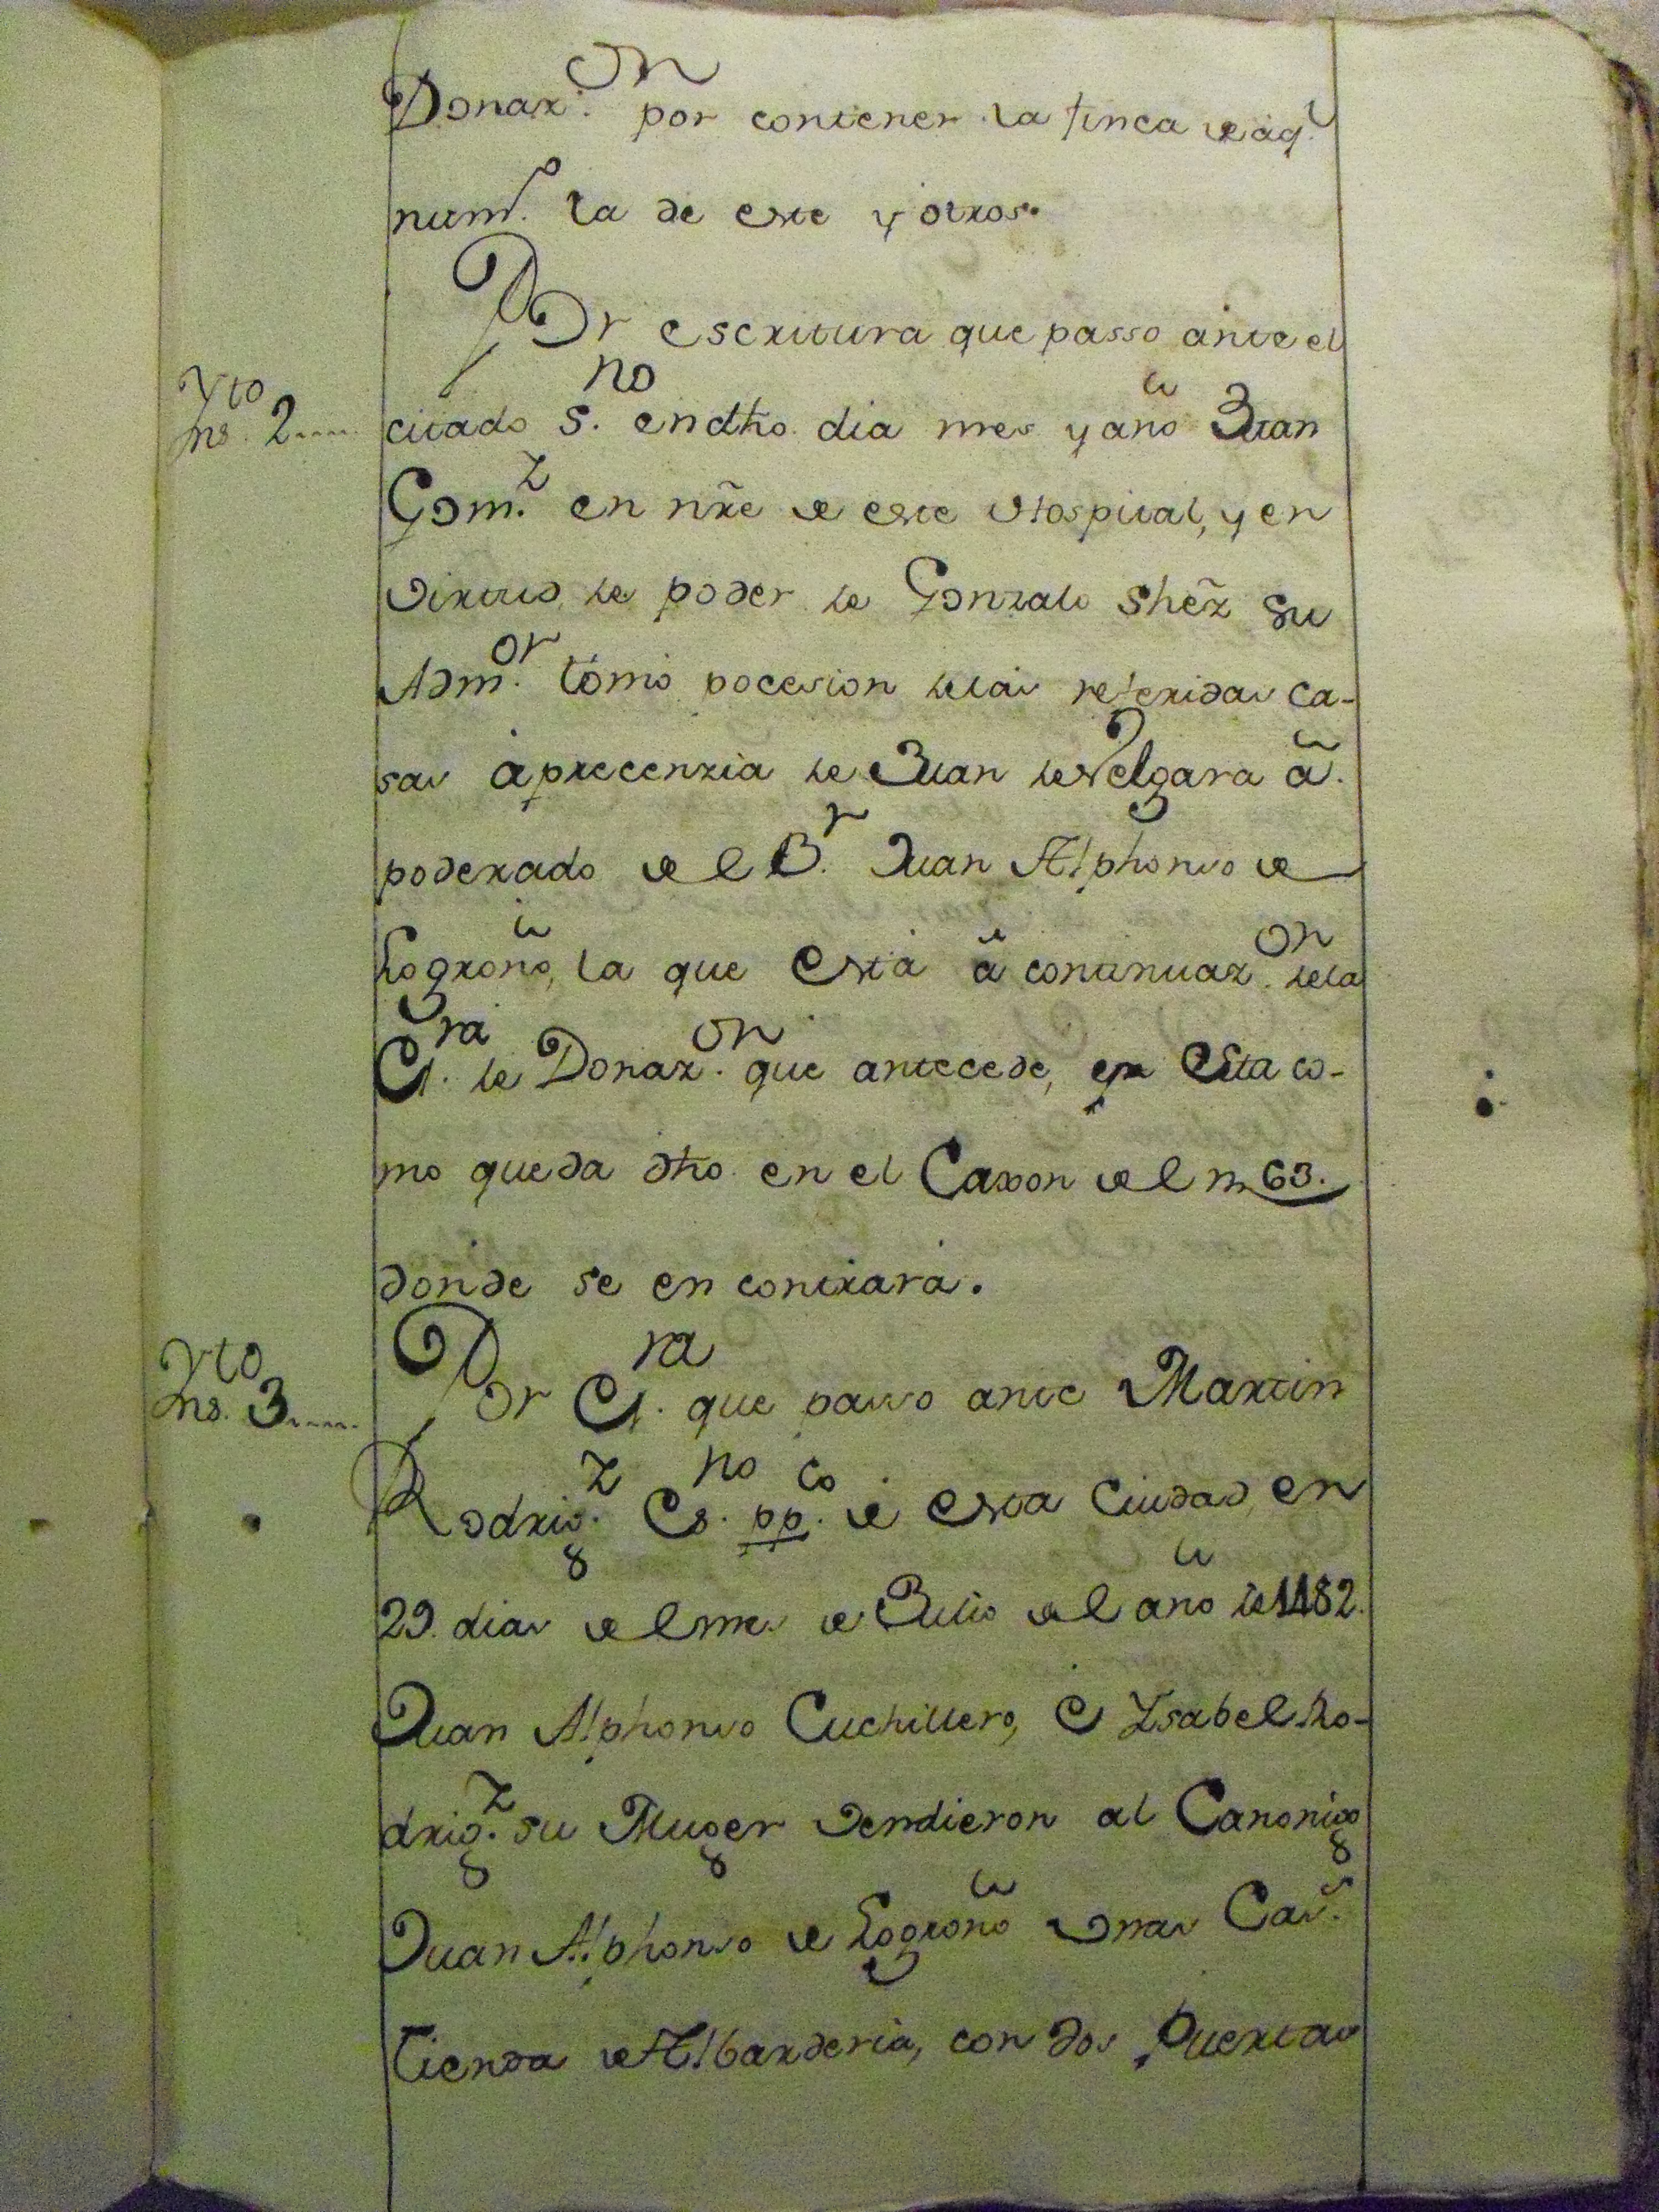 Donaz.on por contener la finca de aq.l
num.o la de este y otros.
Por escritura que passo ante el
Yto
no. 2....
citado S.no en dho. dia mes y año Juan
Gom.z en nr̃e de este Hospital, y en
virtud de poder de Gonzalo Shẽz su
Adm.or tomó pocesion de las referidas ca-
sas á precenzia de Juan de Velgara ã.
poderado de el B.r Juan Alphonso de
Logroño, la que está â continuaz.on de la
Es.ra de Donaz.on que antecede, que Esta co-
mo queda dho. en el Caxon de el n 63.
donde se encontrará.
Yto
no. 3....
Por Es.ra que passo ante Martin
Rodrig.z Es.no pp.co de esta Ciudad, en
29. dias de el mes de Julio de el año de 1482.
Juan Alphonso Cuchillero, é Ysabel Ro-
drig.z su Muger vendieron al Canonigo
Juan Alphonso de Logroño unas Cas.s
Tienda de Albarderia, con dos Puertas